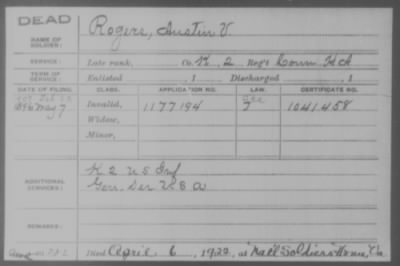 DEAD
NAME OF SOLDIER: Rogers, Austin V
SERVICE: Late rank, Co. K, 2 Reg't Conn. H A
TERM OF SERVICE: Enlisted , 1 Discharged , 1
DATE OF FILING. CLASS. APPLICATION NO. LAW. CERTIFICATE NO.
Invalid, 1177194 1041458
Widow,
Minor,
ADDITIONAL SERVICES:
K 2 U S Inf
Gen. Ser U S A
REMARKS:
Died April 6, 1922, at Nat'l Soldiers Home, Va